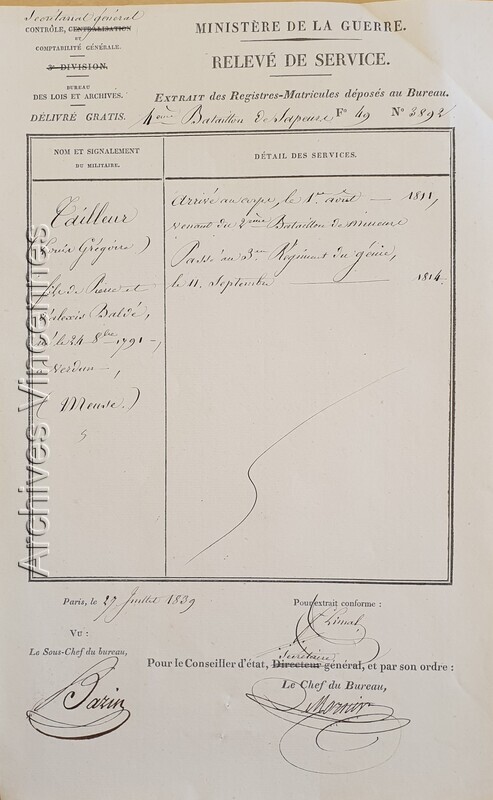 Secrétariat général
CONTRÔLE, CENTRALISATION
ET
COMPTABILITÉ GÉNÉRALE.
3e DIVISION.
BUREAU
DES LOIS ET ARCHIVES.
DÉLIVRÉ GRATIS.
MINISTÈRE DE LA GUERRE.
RELEVÉ DE SERVICE.
EXTRAIT des Registres-Matricules déposés au Bureau.
4ème Bataillon de Sapeurs F° 49 N° 3892
NOM ET SIGNALEMENT
DU MILITAIRE.
Tailleur
(Louis Grégoire)
fils de Pierre et
d'alexis Baldé,
né le 24 8bre 1791,
Verdun,
(Meuse.)
DÉTAIL DES SERVICES.
Arrivé au corps, le 1er avril 1811,
venant du 2ème Bataillon de mineurs
Passé au 3me Régiment du génie,
le 11 Septembre 1814.
Archives Vincennes
Paris, le 27 Juillet 1839
VU :
Le Sous-Chef du bureau,
Bazin
Pour extrait conforme :
Secrétaire
Pour le Conseiller d'état, Directeur général, et par son ordre :
Le Chef du Bureau,